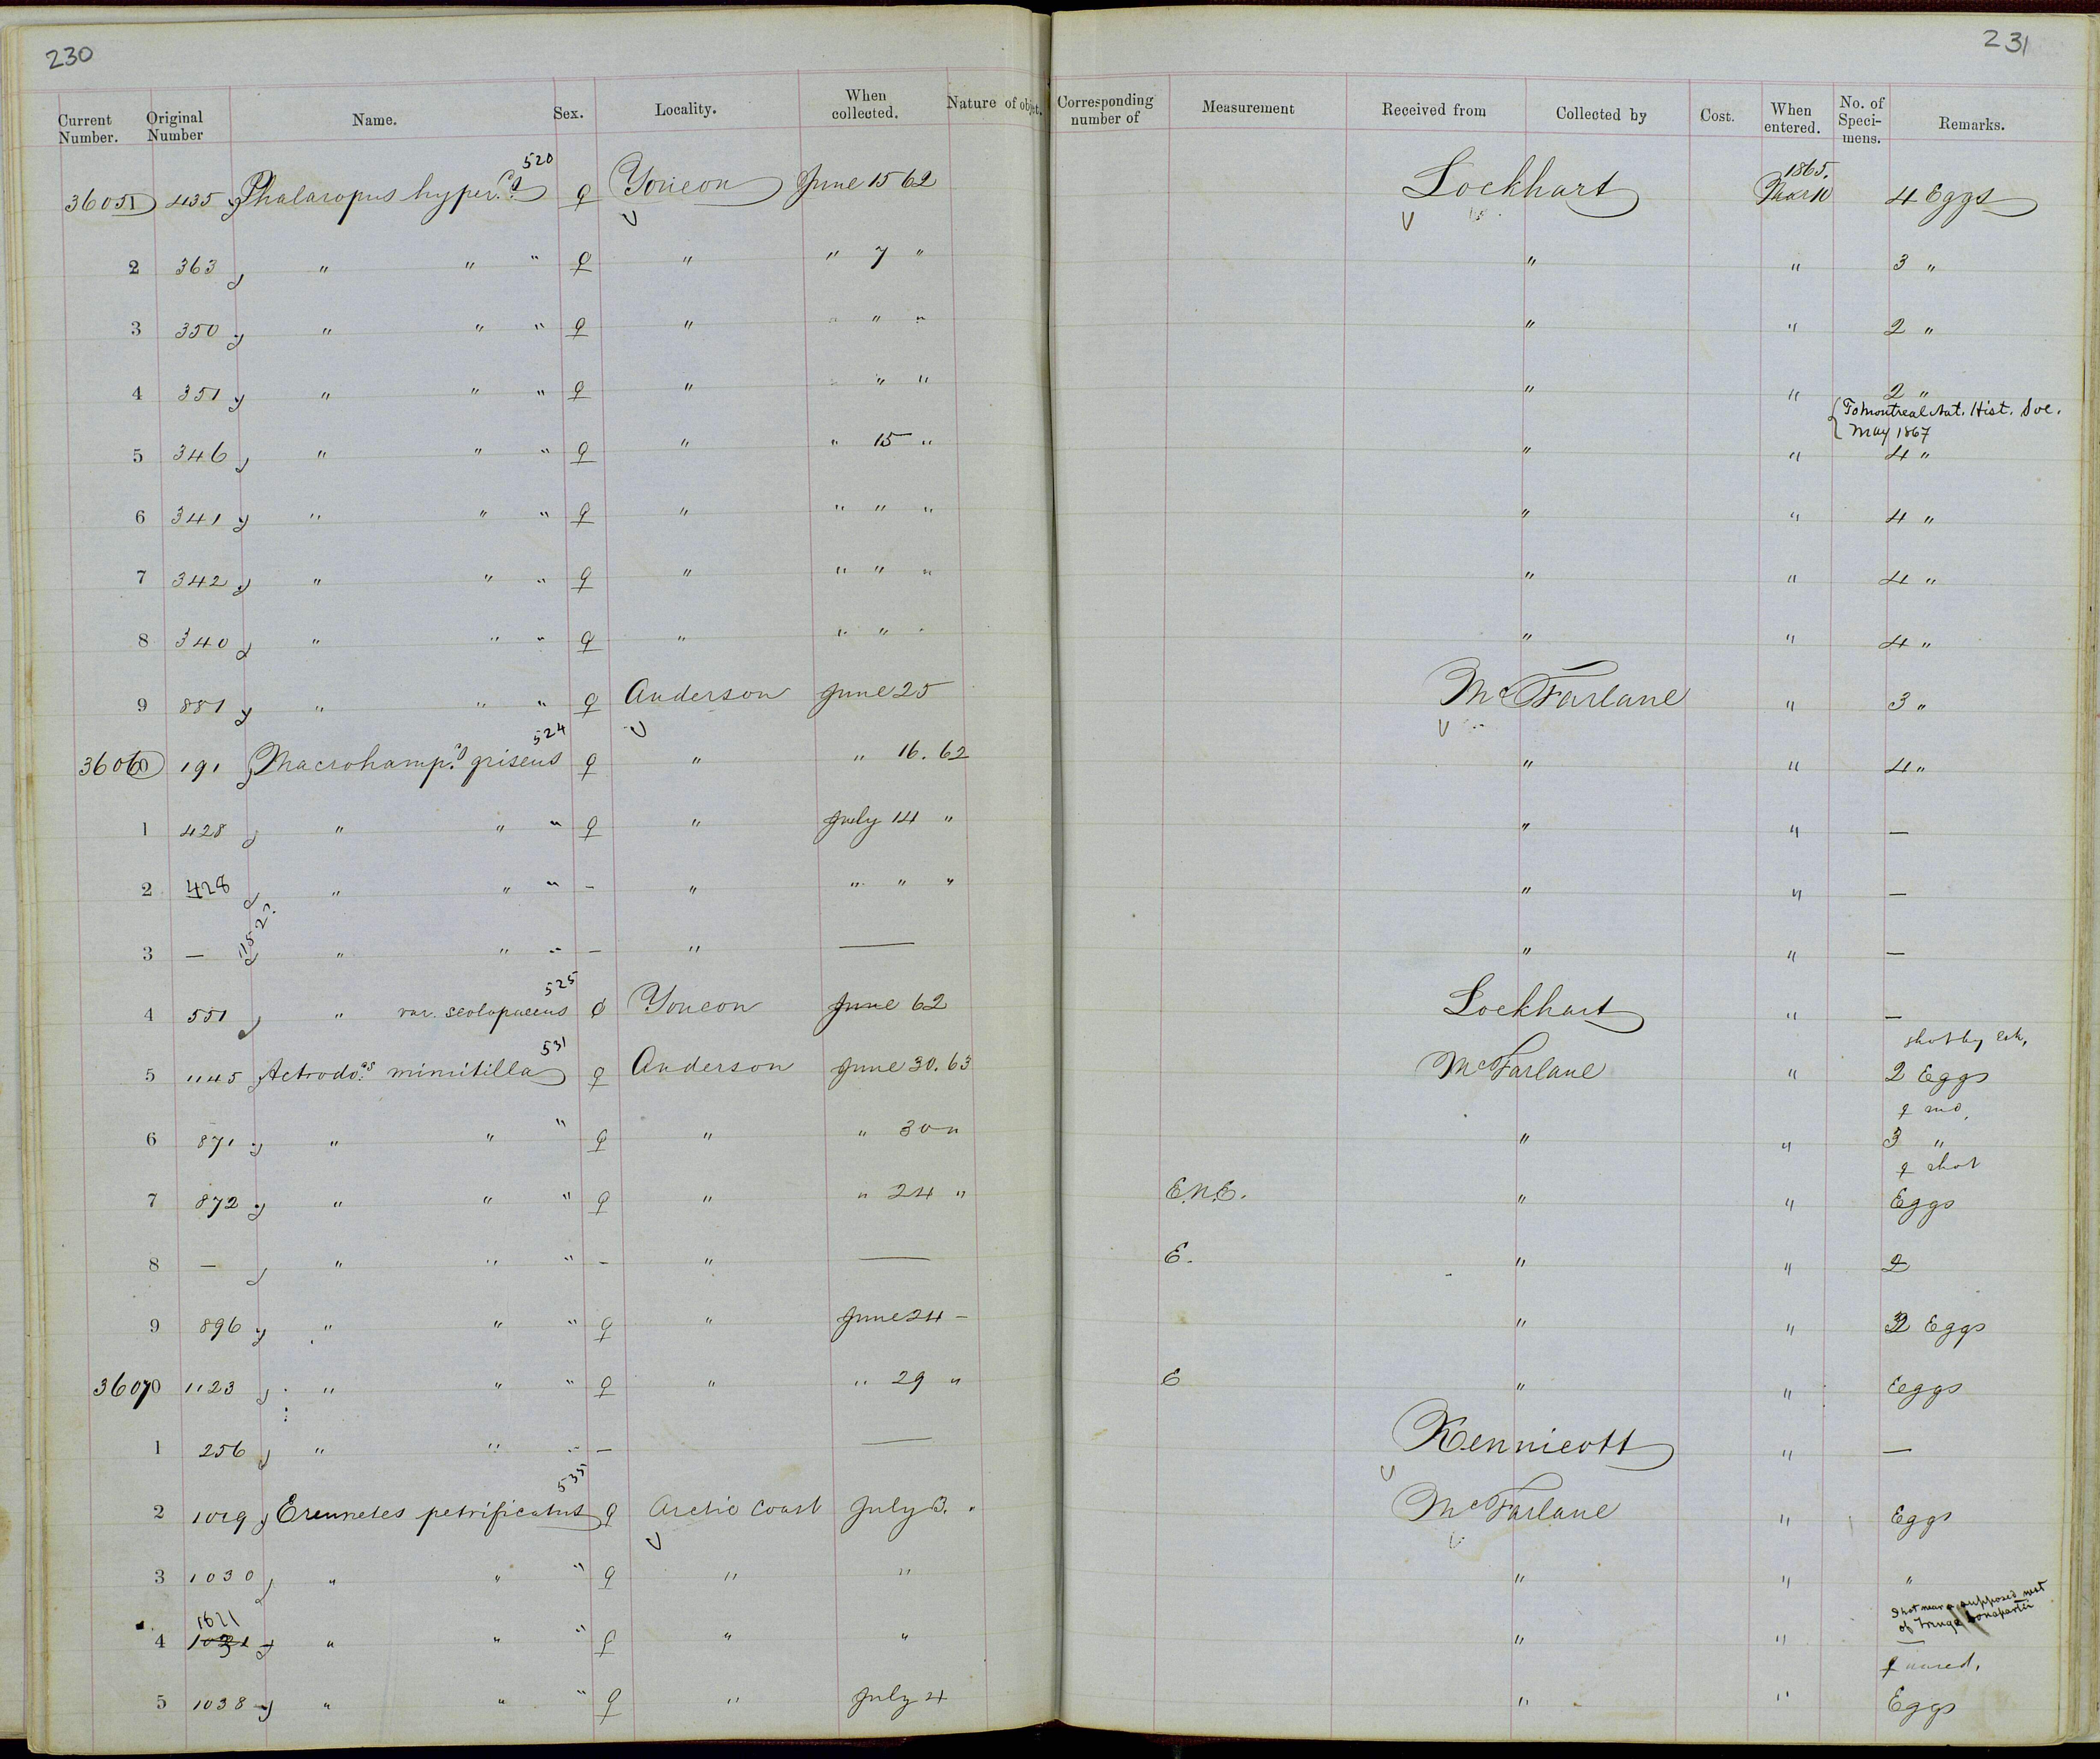 230
231
Current Number. Original Number Name. Sex. Locality. When collected. Nature of object. Corresponding number of Measurement Received from Collected by Cost. When entered. No. of Specimens. Remarks.
520 1865.
36051 435 Phalaropus hyper.s ♀ Youcon June 15 62 Lockhart Mar 10 4 Eggs
2 363 " " " ♀ " " 7 " " " 3 "
3 350 " " " ♀ " " " " " " 2 "
4 351 " " " ♀ " " " " " 2 "
{To Montreal Nat. Hist. Soc.
May 1867
5 346 " " " ♀ " " 15 " " " 4 "
6 341 " " " ♀ " " " " " " 4 "
7 342 " " " ♀ " " " " " " 4 "
8 340 " " " ♀ " " " " " " 4 "
9 881 " " " ♀ Anderson June 25 McFarlane " 3 "
524
36060 191 Macrohamp.s griseus ♀ " " 16. 62 " " 4 "
1 428 " " " ♀ " July 14 " " " —
2 428 " " " – " " " " " " —
3 — " " " – " — " " —
525
4 551 " var. scolopaceus Youcon June 62 Lockhart " —
531 shot by
5 1145 Actrodo.as minutilla ♀ Anderson June 30. 63 McFarlane " 2 Eggs
♀
6 871 " " " ♀ " " 30 " " " 3 "
♀ shot
7 872 " " " ♀ " " 24 " E.N.E. " " Eggs
8 — " " " – " — E. " " 2
9 896 " " " ♀ " June 24 – " " Eggs
36070 1123 " " " ♀ " " 29 " E " " Eggs
1 256 " " " — — Kennicott " —
535
2 1019 Ereunetes petrificatus ♀ Arctic Coast July 3. McFarlane " Eggs
3 1030 " " " ♀ " " " " "
Shot near a supposed nest
of Tringa bonapartei
1621
4 " " " ♀ " " " " —
♀
5 1038 " " " ♀ " July 4 " " Eggs